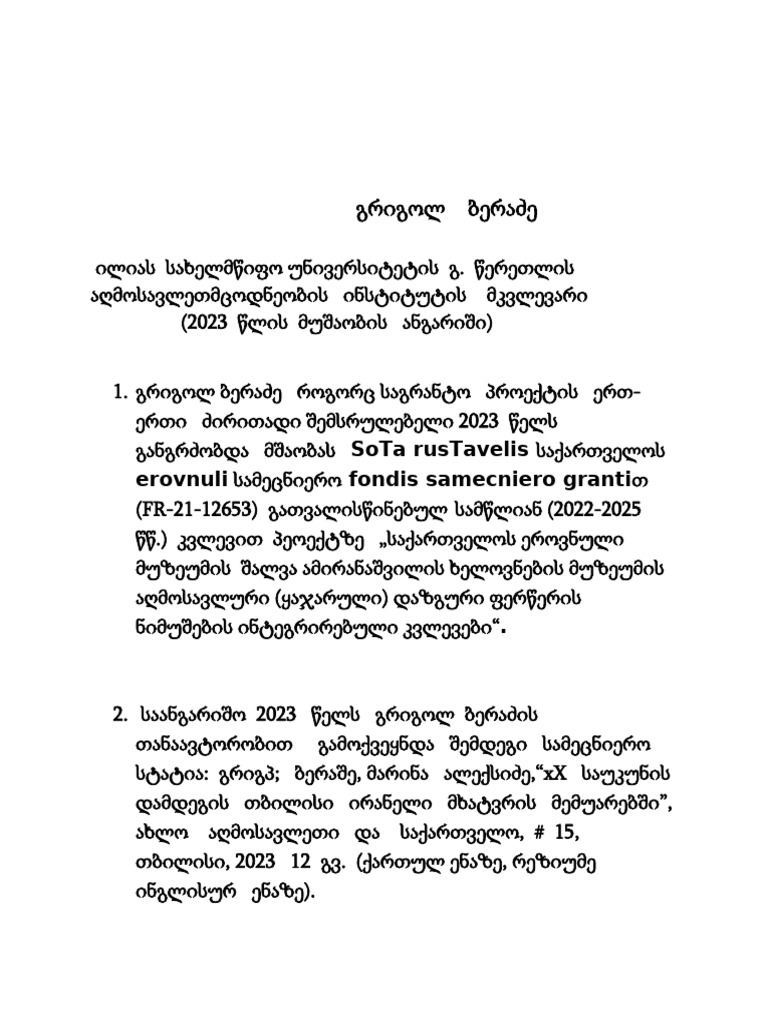 გრიგოლ ბერაძე
ილიას სახელმწიფო უნივერსიტეტის გ. წერეთლის
აღმოსავლეთმცოდნეობის ინსტიტუტის მკვლევარი
(2023 წლის მუშაობის ანგარიში)
1. გრიგოლ ბერაძე როგორც საგრანტო პროექტის ერთ-
ერთი ძირითადი შემსრულებელი 2023 წელს
განგრძობდა მშაობას SoTa rusTavelis საქართველოს
erovnuli სამეცნიერო fondis samecniero grantiთ
(FR-21-12653) გათვალისწინებულ სამწლიან (2022-2025
წწ.) კვლევით პეოექტზე „საქართველოს ეროვნული
მუზეუმის შალვა ამირანაშვილის ხელოვნების მუზეუმის
აღმოსავლური (ყაჯარული) დაზგური ფერწერის
ნიმუშების ინტეგრირებული კვლევები“.
2. საანგარიშო 2023 წელს გრიგოლ ბერაძის
თანაავტორობით გამოქვეყნდა შემდეგი სამეცნიერო
სტატია: გრიგპ; ბერაშე, მარინა ალექსიძე,“xX საუკუნის
დამდეგის თბილისი ირანელი მხატვრის მემუარებში”,
ახლო აღმოსავლეთი და საქართველო, # 15,
თბილისი, 2023 12 გვ. (ქართულ ენაზე, რეზიუმე
ინგლისურ ენაზე).